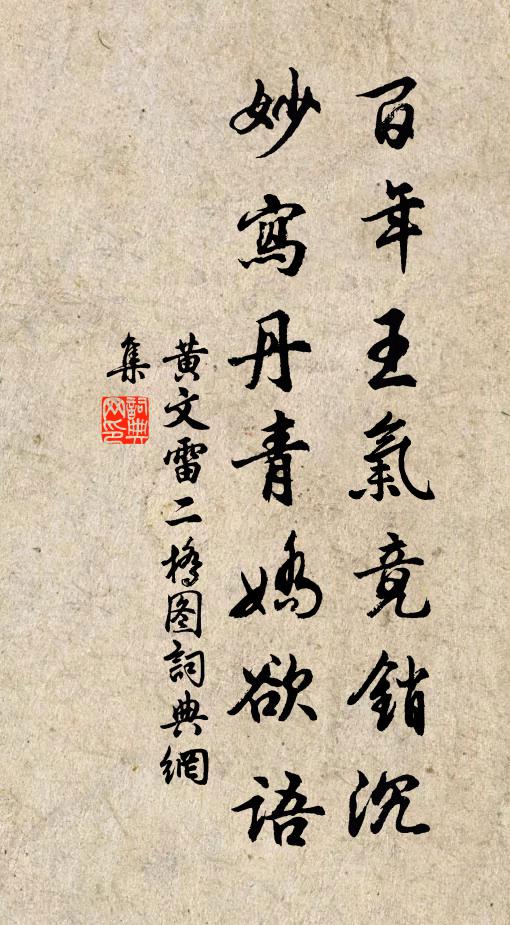 百年王氣竟銷沉
妙寫丹青嬌欲語
黄文雷二橋图詞典網
集
詞典
网印